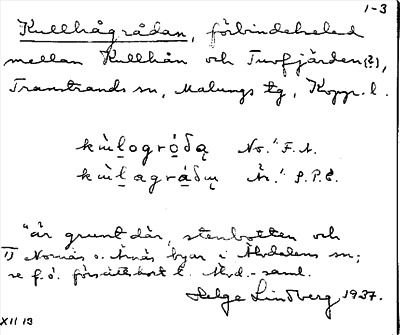 1-3
Kullhågrådan, förbindelseled
mellan Kullhån och Turfjärden(?),
Transtrands sn, Malungs tg, Kopp. l.
No." F. A.
Är." S.P.E.
"är grunt där, stenbotten och
1) Nornäs o. Ärnäs byar i Älvdalens sn;
se f.ö. försättskort t. Älvd.-saml.
Helge Lindberg 1937.
XII 13